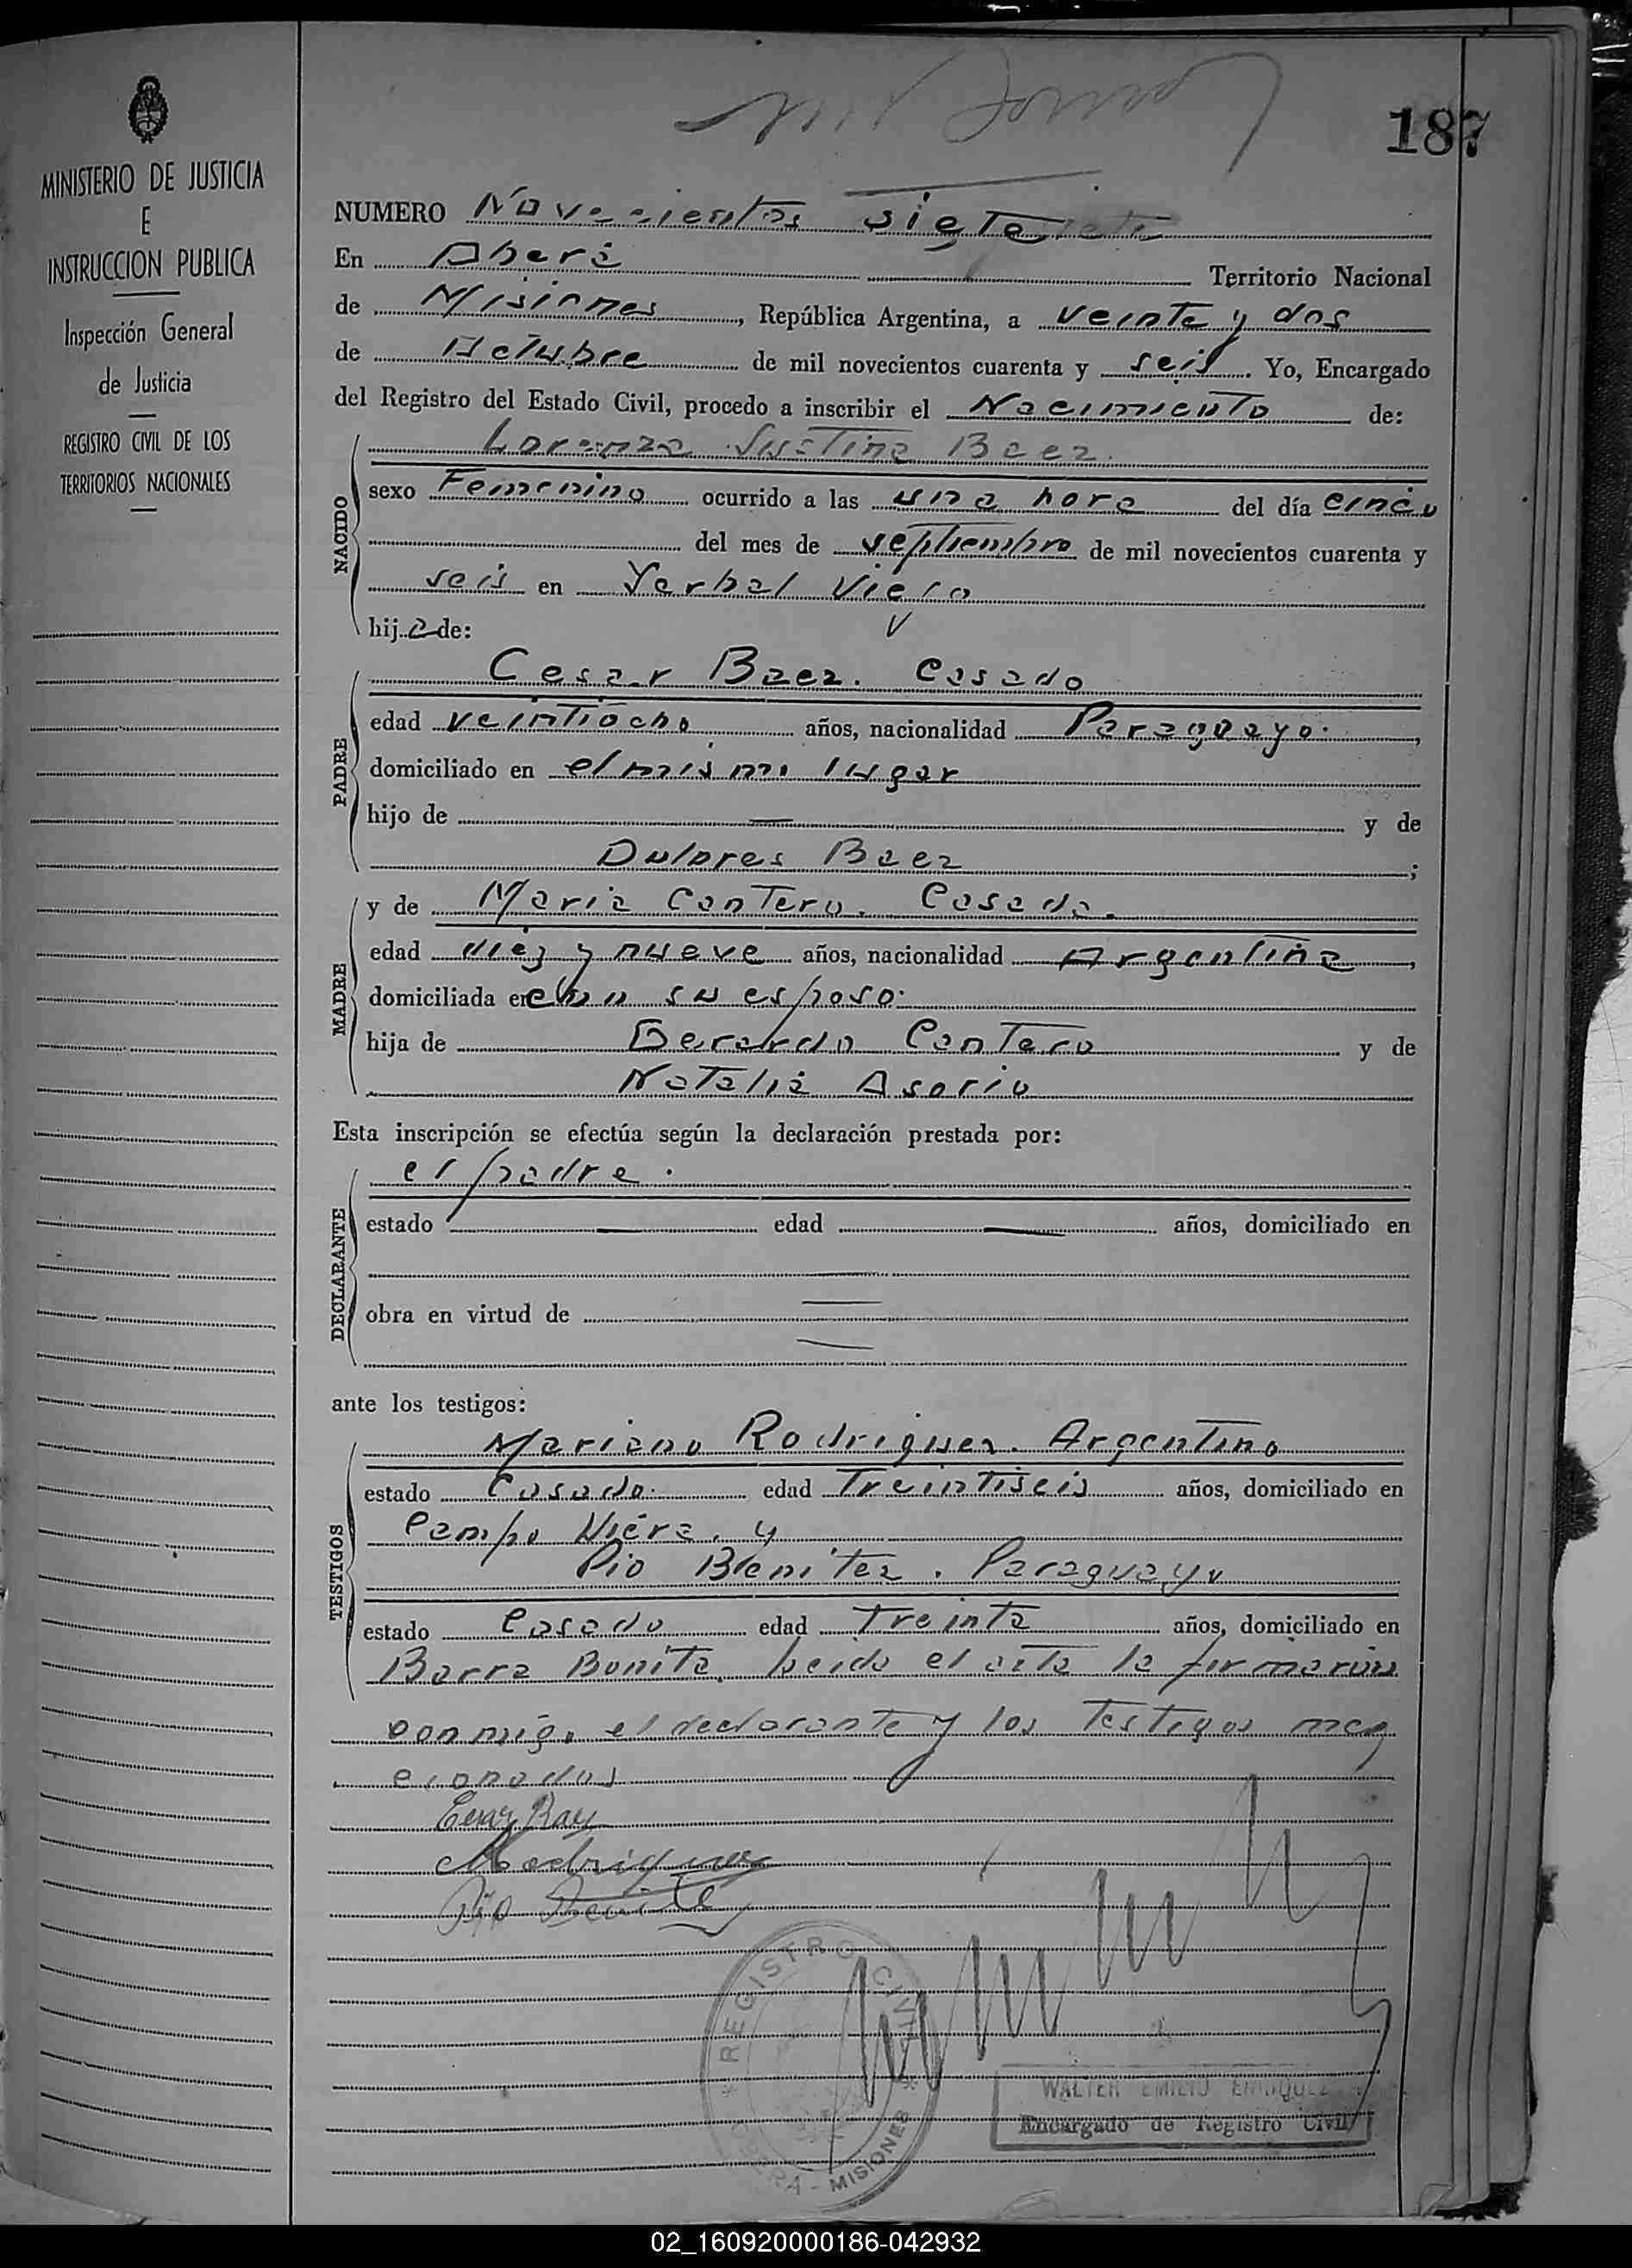 187
MINISTERIO DE JUSTICIA
E
INSTRUCCION PUBLICA
Inspección General
de Justicia
REGISTRO CIVIL DE LOS
TERRITORIOS NACIONALES
NUMERO Novecientos siete
En Oberá Territorio Nacional
de Misiones, República Argentina, a veinte y dos
de Octubre de mil novecientos cuarenta y seis. Yo, Encargado
del Registro del Estado Civil, procedo a inscribir el Nacimiento de:
NACIDO
Lorenza Justina Baez.
sexo Femenino ocurrido a las una hora del día cinco
del mes de septiembre de mil novecientos cuarenta y
seis en Yerbal Viejo
hija de:
PADRE
Cesar Baez. Casado
edad veintiocho años, nacionalidad Paraguayo.,
domiciliado en el mismo lugar
hijo de — y de
Dolores Baez ;
MADRE
y de Maria Cantero. Casada.
edad diez y nueve años, nacionalidad Argentina,
domiciliada en con su esposo.
hija de Berardo Cantero y de
Natalia Asorio
Esta inscripción se efectúa según la declaración prestada por:
DECLARANTE
el padre.
estado — edad — años, domiciliado en
—
obra en virtud de —
—
ante los testigos:
TESTIGOS
Mariano Rodriguez. Argentino
estado Casado. edad Treintiseis años, domiciliado en
Campo Viera. y
Pio Benitez. Paraguayo
estado Casado edad Treinta años, domiciliado en
Barra Bonita. Leida el acta la firmaron
conmigo el declarante y los Testigos men
cionados
Cesar Baez
MRodriguez
Pio Benite
REGISTRO CIVIL
OBERA - MISIONES
WALTER EMILIO ENRIQUEZ
Encargado de Registro Civil
02_160920000186-042932